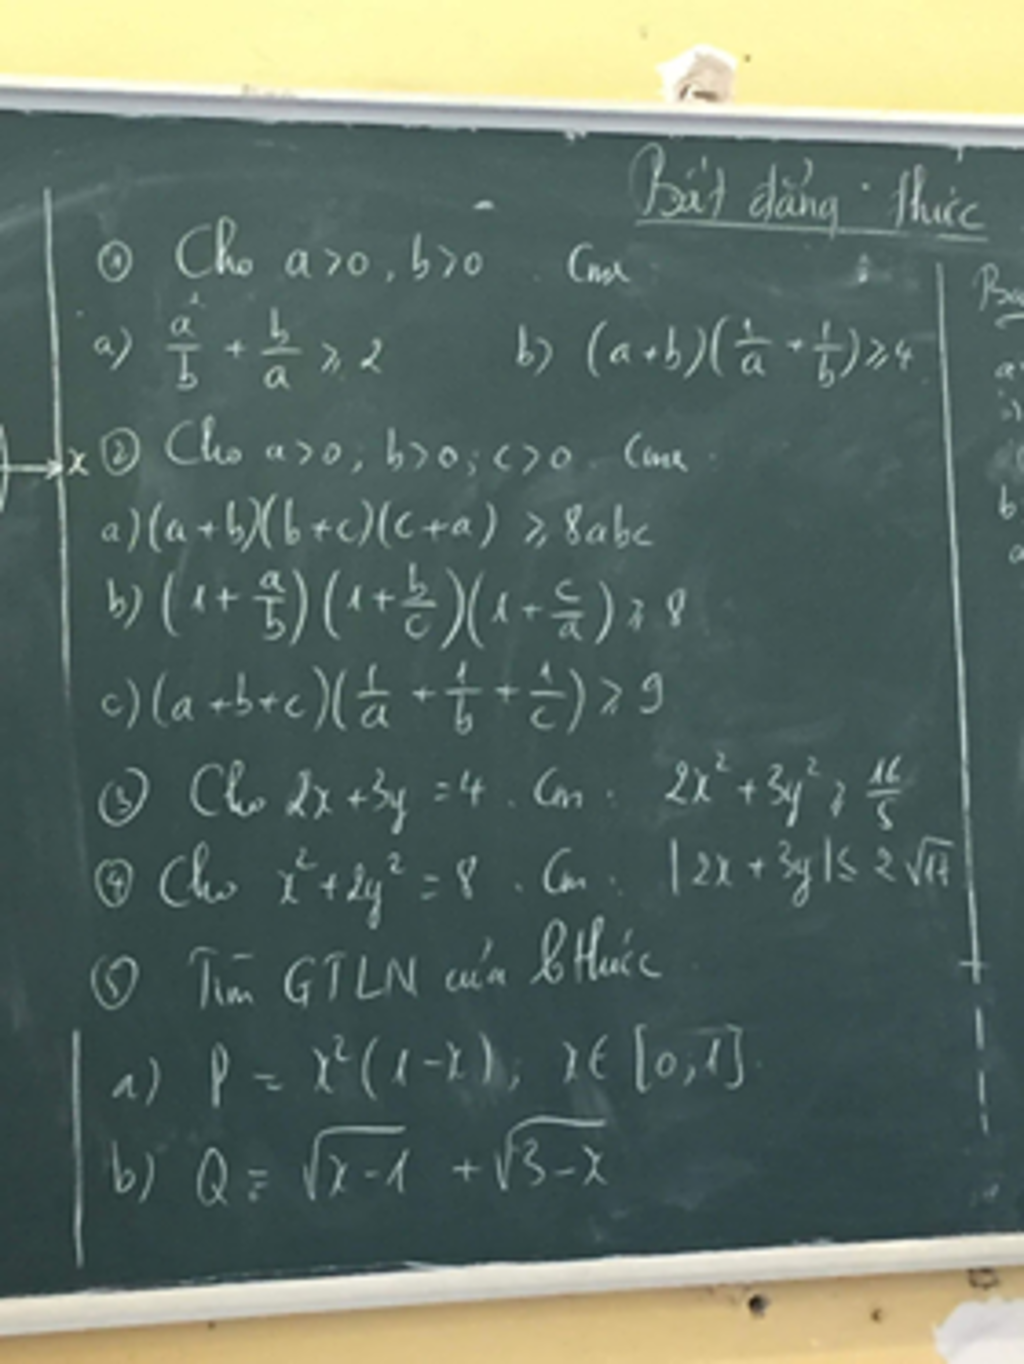 Bất đẳng thức
① Cho a>0, b>0 . Cmr
a) a/b + b/a ≥ 2 b) (a+b)(1/a + 1/b) ≥ 4
x
② Cho a>0; b>0; c>0. Cmr
a) (a+b)(b+c)(c+a) ≥ 8abc
b) (1 + a/b)(1 + b/c)(1 + c/a) ≥ 8
c) (a+b+c)(1/a + 1/b + 1/c) ≥ 9
③ Cho 2x+3y = 4 . Cm . 2x² + 3y² ≥ 16/5
④ Cho x² + 2y² = 8 . Cm . |2x + 3y| ≤ 2√17
⑤ Tìm GTLN của bthức
a) P = x²(1-x); x∈ [0;1].
b) Q = √x-1 + √3-x